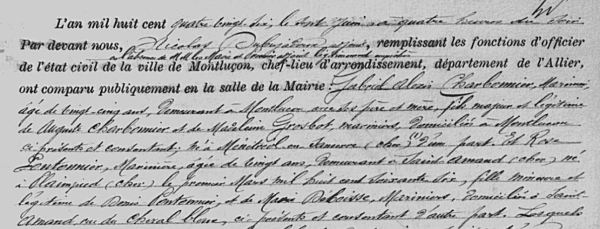 L'an mil huit cent quatre vingt six, le sept Juin à quatre heures du soir
Par devant nous, Nicolas adjoint, remplissant les fonctions d'officier
en l'absence de M. le Maire et du premier adjoint
de l'état civil de la ville de Montluçon, chef-lieu d'arrondissement, département de l'Allier,
ont comparu publiquement en la salle de la Mairie: Gabriel Alexis Charbonnier, Marinier
âgé de vingt-cinq ans, Demeurant à Montluçon avec ses père et mère, fils majeur et légitime
de Auguste Charbonnier et de Madeleine Grosbot, mariniers, domiciliés à Montluçon
ci présents et consentant, né à (Cher) d'une part. Et Rose
Pontonnier, Marinière, âgée de vingt ans, Demeurant à Saint-Amand (Cher) né
à Plaimpied (Cher) le premier Mars mil huit cent soixante six, fille mineure et
légitime de Denis Pontonnier, et de Marie Beboisse, Mariniers, domiciliés à Saint-
Amand rue du Cheval blanc, ci présents et consentant d'autre part. Lesquels